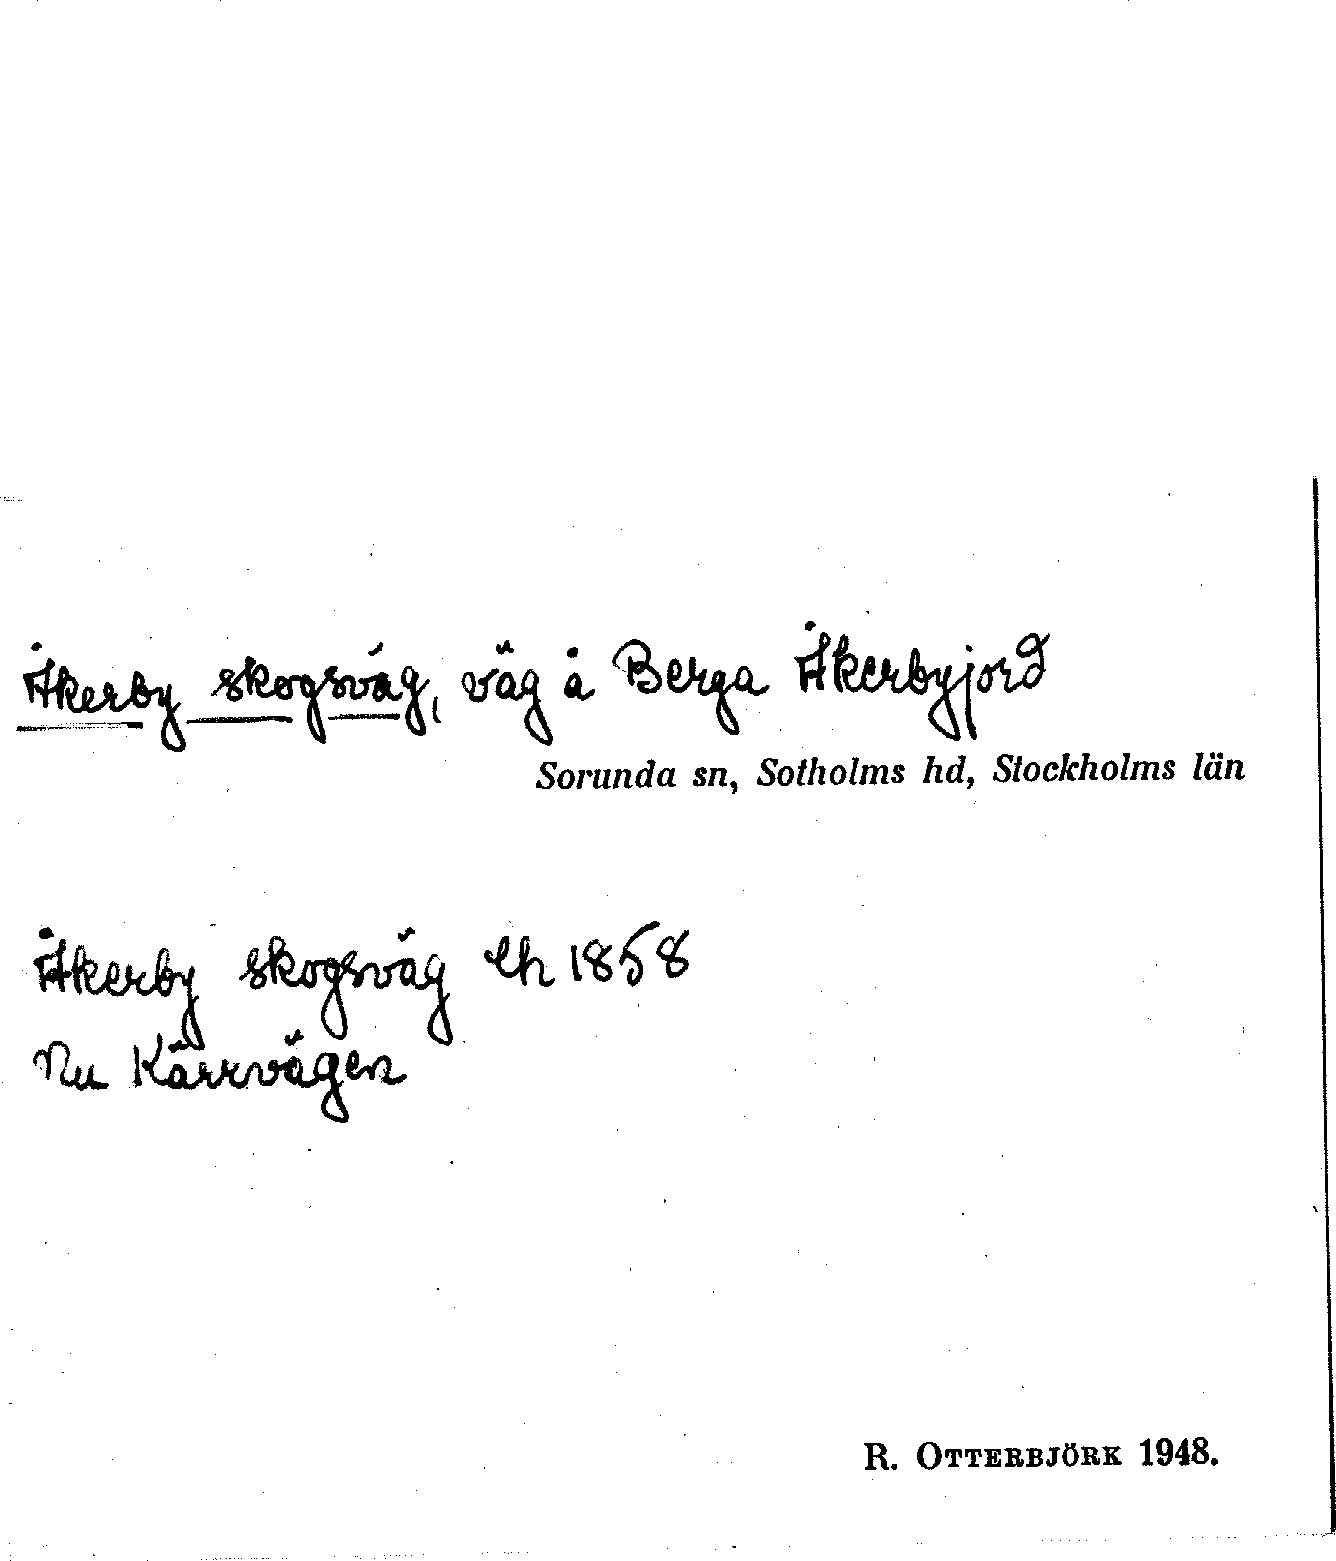 Åkerby skogsväg, väg å Berga Åkerbyjord
Sorunda sn, Sotholms hd, Stockholms län
Åkerby skogsväg Lh 1858
Nu Kärrvägen
R. OTTERBJÖRK 1948.